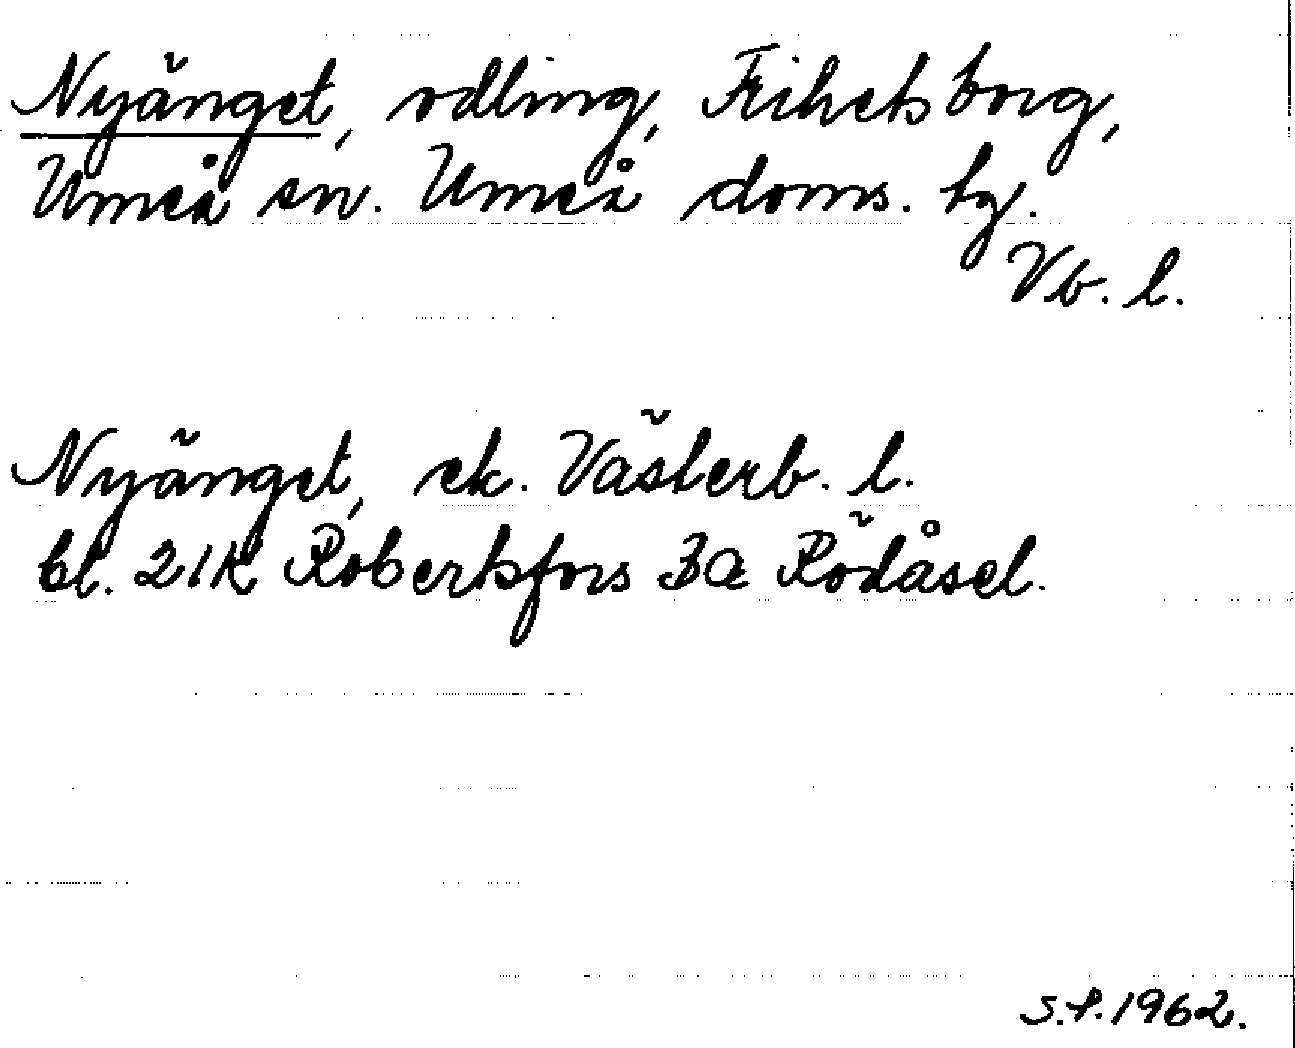 Nyänget, odling, Frihetsborg,
Umeå sn. Umeå doms. tg.
Vb. l.
Nyänget, ek. Västerb. l.
bl. 21K Robertsfors 3a Rödåsel.
S.P. 1962.